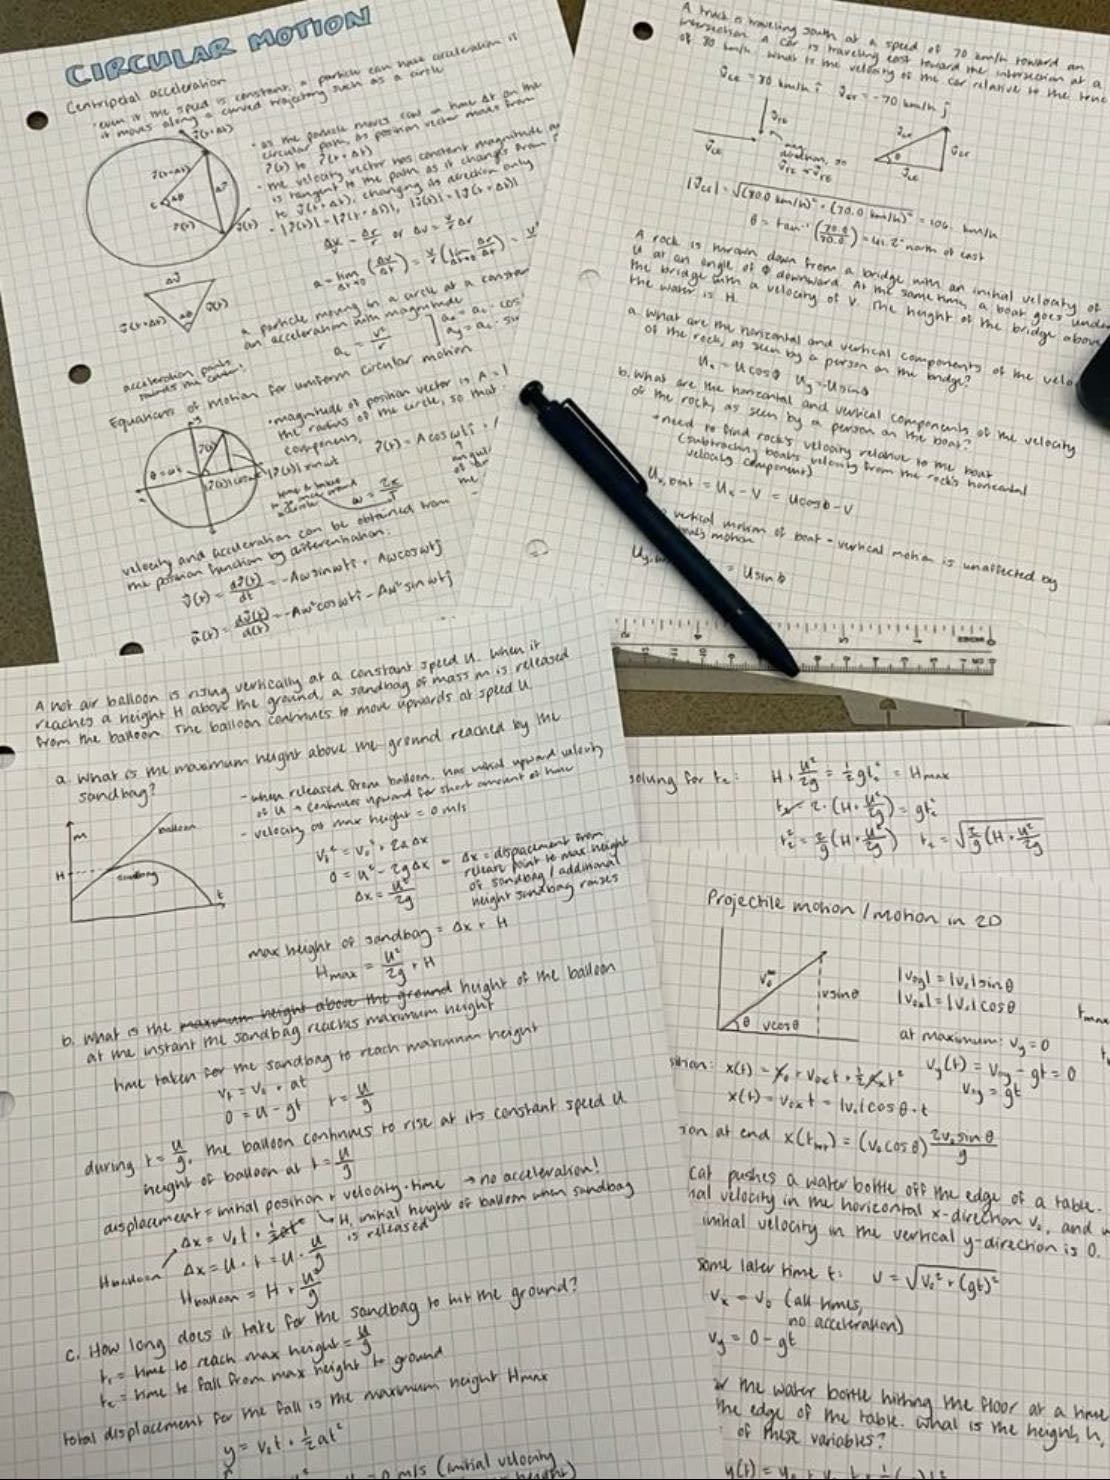 CIRCULAR MOTION
Centripetal acceleration
• even if the speed is constant, a particle can have acceleration if
it moves along a curved trajectory such as a circle
• as the particle moves ccw in time Δt on the
circular path, its position vector moves from
r⃗(t) to r⃗(t+Δt)
• the velocity vector has constant magnitude and
is tangent to the path as it changes from
to v⃗(t+Δt), changing its direction only
• |r⃗(t)| = |r⃗(t+Δt)|, |v⃗(t)| = |v⃗(t+Δt)|
Δv/v = Δr/r or Δv = v/r Δr
a = lim Δt→0 (Δv/Δt) = v/r (lim Δt→0 Δr/Δt) = v²
v⃗(t+Δt)
r⃗(t+Δt)
Δθ
Δr⃗
r⃗(t)
v⃗(t)
Δv⃗
v⃗(t+Δt)
v⃗(t)
Δθ
acceleration points
towards the center!
a particle moving in a circle at a constan
an acceleration with magnitude
a_c = v²/r
a_x = a_c · cos
a_y = a_c · sin
Equations of motion for uniform circular motion
• magnitude of position vector is A = |
the radius of the circle, so that
components,
r⃗(t) = A cos ωt î +
θ = ωt
r⃗(t)
|r⃗(t)| sin ωt
ω = 2π/T
velocity and acceleration can be obtained from
the position function by differentiation:
v⃗(t) = dr⃗(t)/dt = -Aω sin ωt î + Aω cos ωt ĵ
a⃗(t) = dv⃗(t)/d(t) = -Aω² cos ωt î - Aω² sin ωt ĵ
A truck is traveling south at a speed of 70 km/h toward an
intersection. A car is traveling east toward the intersection at a
of 80 km/h. What is the velocity of the car relative to the truc
v⃗CE = 80 km/h î v⃗ET = -70 km/h ĵ
v⃗TE
v⃗CE
direction, so
v⃗CE
θ
|v⃗CT| = √((80.0 km/h)² + (70.0 km/h)² = 106. km/h
θ = tan⁻¹(70.0/80.0) = 41.2° north of east
A rock is thrown down from a bridge with an initial velocity of
U at an angle of Φ downward. At the same time, a boat goes under
the bridge with a velocity of V. The height of the bridge above
the water is H.
a. What are the horizontal and vertical components of the velo
of the rock, as seen by a person on the bridge?
Ux = U cos Φ Uy = U sin Φ
b. What are the horizontal and vertical components of the velocity
of the rock, as seen by a person on the boat?
→ need to find rock's velocity relative to the boat
(subtracting boat's velocity from the rock's horizontal
velocity component)
Ux,boat = Ux - V = U cos Φ - V
vertical motion of boat - vertical motion is unaffected by
motion
= U sin Φ
A hot air balloon is rising vertically at a constant speed U. When it
reaches a height H above the ground, a sandbag of mass m is released
from the balloon. The balloon continues to move upwards at speed U.
a. What is the maximum height above the ground reached by the
sandbag?
m
balloon
H
sandbag
t
- when released from balloon, has initial upward velocity
of U → continues upward for short amount of time
- velocity at max height = 0 m/s
Vf² = V₀² + 2aΔx
0 = u² - 2gΔx ← Δx = displacement from
release point to max height
of sandbag / additional
height sandbag raises
Δx = u²/2g
max height of sandbag = Δx + H
Hmax = u²/2g + H
b. What is the maximum height above the ground height of the balloon
at the instant the sandbag reaches maximum height
time taken for the sandbag to reach maximum height
Vf = V₀ + at
0 = u - gt t = u/g
during t = u/g, the balloon continues to rise at its constant speed U
height of balloon at t = u/g
displacement = initial position + velocity · time → no acceleration!
Δx = V₀t + ½at²
H, initial height of balloon when sandbag
is released
Hballoon
Δx = U · t = U · u/g
Hballoon = H + u²/g
c. How long does it take for the sandbag to hit the ground?
t₁ = time to reach max height = u/g
t₂ = time to fall from max height to ground
total displacement for the fall is the maximum height Hmax
y = V₀t + ½at²
0 m/s (initial velocity
height)
solving for t₂: H + u²/2g = ½gt₂² = Hmax
2 · (H + u²/2g) = gt₂²
t₂² = 2/g (H + u²/2g) t₂ = √(2/g (H + u²/2g
Projectile motion / motion in 2D
v sin θ
θ v cos θ
|v₀y| = |v₀| sin θ
|v₀x| = |v₀| cos θ
at maximum: vy = 0
tmax
sition: x(t) = x₀ + v₀x t + ½ax t²
vy(t) = v₀y - gt = 0
x(t) = v₀x t = |v₀| cos θ · t
v₀y = gt
ion at end x(ttot) = (v₀ cos θ) 2v₀ sin θ/g
cat pushes a water bottle off the edge of a table.
ial velocity in the horizontal x-direction v₀, and
initial velocity in the vertical y-direction is 0.
some later time t: v = √(v₀² + (gt)²
vx = v₀ (all times,
no acceleration)
vy = 0 - gt
the water bottle hitting the floor at a time
the edge of the table. What is the height, h,
of these variables?